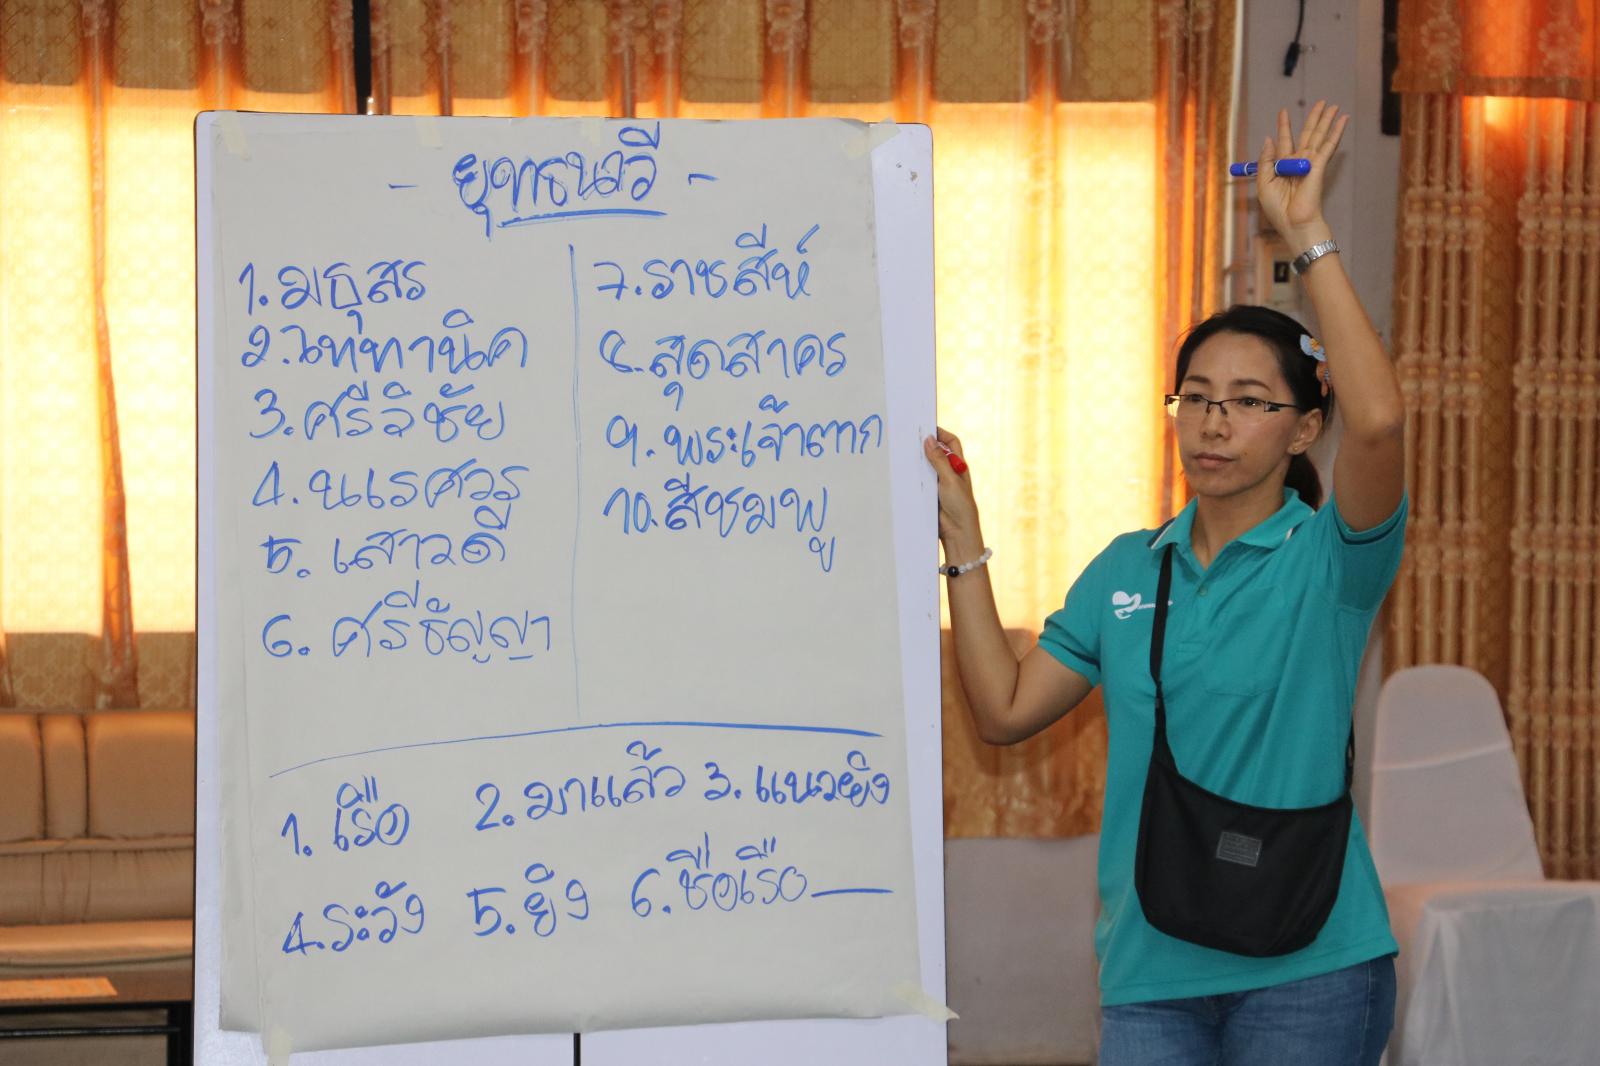 - ยุทธนาวี -
1. มธุสร
2. ไททานิค
3. ศรีวิชัย
4. นเรศวร
5. เสาวดี
6. ศรีธัญญา
7. ราชสีห์
8. สุดสาคร
9. พระเจ้าตาก
10. สีชมพู
1. เรือ 2. มาแล้ว 3. แนวยิง
4. ระวัง 5. ยิง 6. ชื่อเรือ